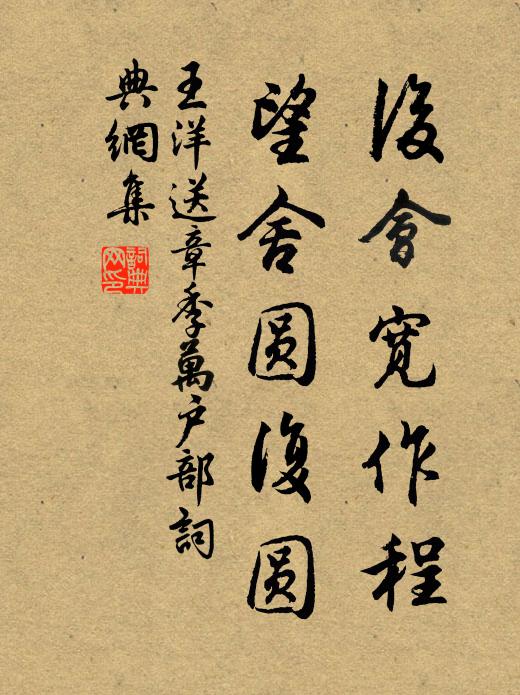 後會寬作程
望舍圆復圆
王洋送章季萬户部詞
典網集
詞典網印